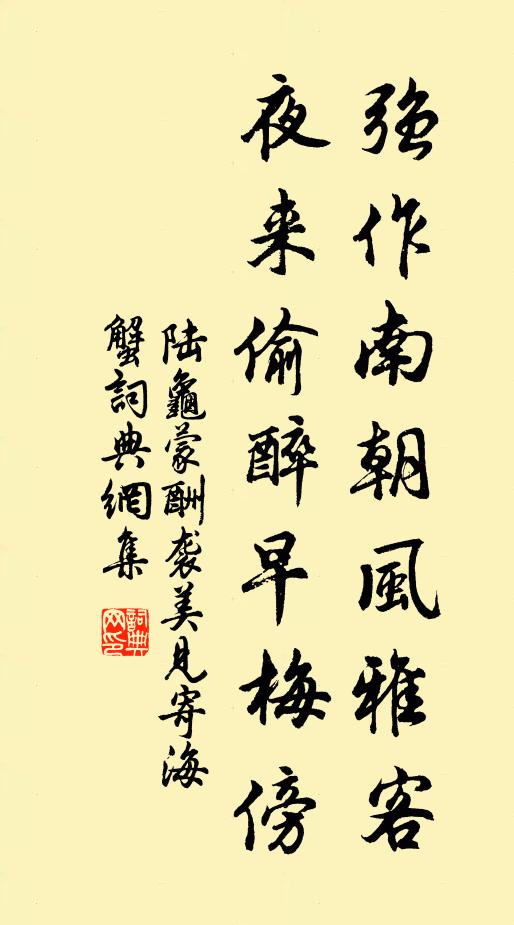 强作南朝風雅客
夜来偷醉早梅傍
陆龜蒙酬袭美見寄海
蟹詞典網集
詞典网印